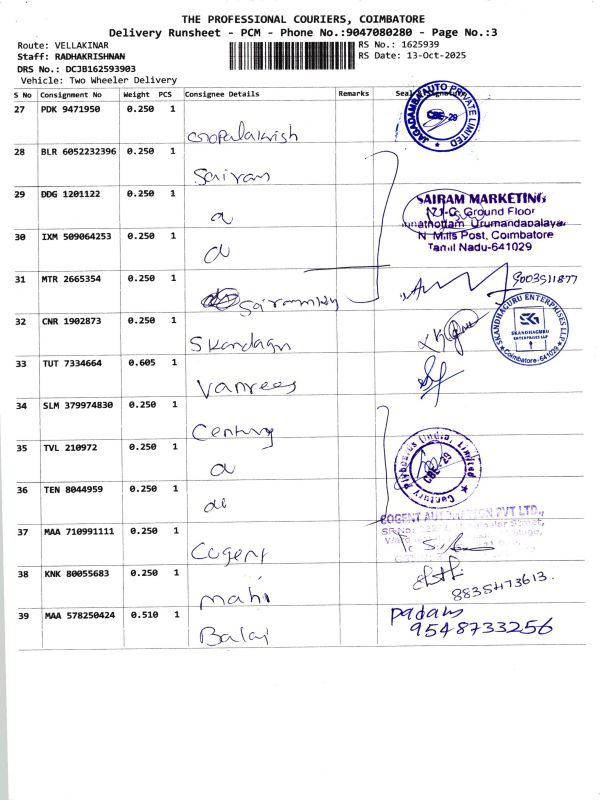 THE PROFESSIONAL COURIERS, COIMBATORE
Delivery Runsheet - PCM - Phone No.:9047080280 - Page No.:3
Route: VELLAKINAR
RS No.: 1625939
Staff: RADHAKRISHNAN
RS Date: 13-Oct-2025
DRS No.: DCJB162593903
Vehicle: Two Wheeler Delivery
S No Consignment No Weight PCS Consignee Details Remarks Seal
27 PDK 9471950 0.250 1
JAGADAMBA AUTO PRIVATE LIMITED
CBE-29
Gopalakrish
28 BLR 6052232396 0.250 1
Sairam
29 DDG 1201122 0.250 1
SAIRAM MARKETING
Ground Floor
Urumandapalayam
N Mills Post, Coimbatore
Tamil Nadu-641029
30 IXM 509064253 0.250 1
31 MTR 2665354 0.250 1
9003511877
32 CNR 1902873 0.250 1
SKANDHAGURU ENTERPRISES LLP
SKG
SKANDHAGURU
ENTERPRISES LLP
Coimbatore-641029
Skandagu
33 TUT 7334664 0.605 1
34 SLM 379974830 0.250 1
Century
35 TVL 210972 0.250 1
Century Plyboards (India) Limited
CBE-29
36 TEN 8044959 0.250 1
COGENT AUTOMATION PVT LTD.,
37 MAA 710991111 0.250 1
Cogent
38 KNK 80055683 0.250 1
8835473613.
mahi
39 MAA 578250424 0.510 1
padam
9548733256
Balaj